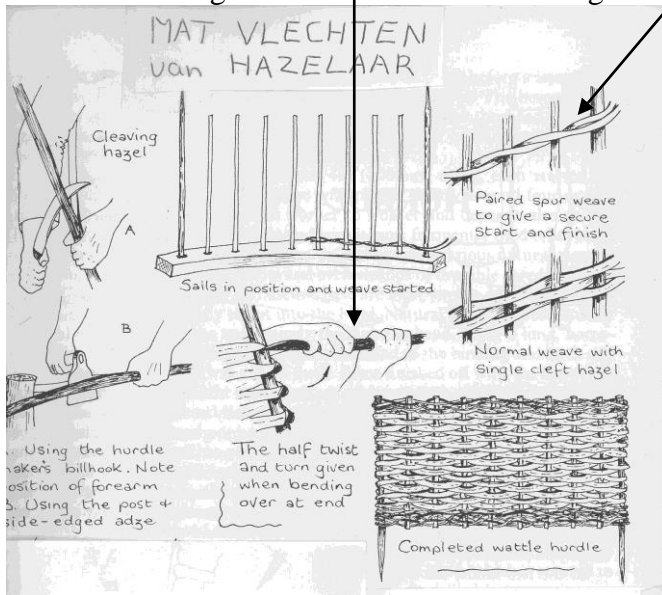 MAT VLECHTEN
van HAZELAAR
Cleaving
hazel
A
Sails in position and weave started
Paired spur weave
to give a secure
start and finish
B
Normal weave with
single cleft hazel
. Using the hurdle
maker's billhook. Note
position of forearm
B. Using the post &
side-edged adze
The half twist
and turn given
when bending
over at end
Completed wattle hurdle